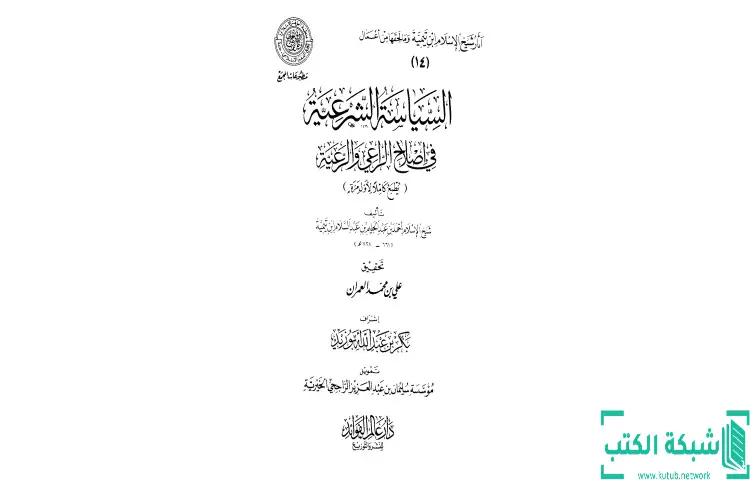 آثار شيخ الإسلام ابن تيمية وما لحقها من أعمال
(١٤)
مطبوعات المجمع
السِّيَاسَةُ الشَّرْعِيَّةُ
في إصلاح الراعي والرعية
( يُطبع كاملاً لأول مرة )
تأليف
شيخ الإسلام أحمد بن عبد الحليم بن عبد السلام ابن تيمية
(٦٦١ - ٧٢٨ هـ)
تحقيق
علي بن محمد العمران
إشراف
بكر بن عبد الله أبو زيد
تمويل
مؤسسة سليمان بن عبد العزيز الراجحي الخيرية
دار عالم الفوائد
للنشر والتوزيع
شبكة الكتب
www.kutub.network